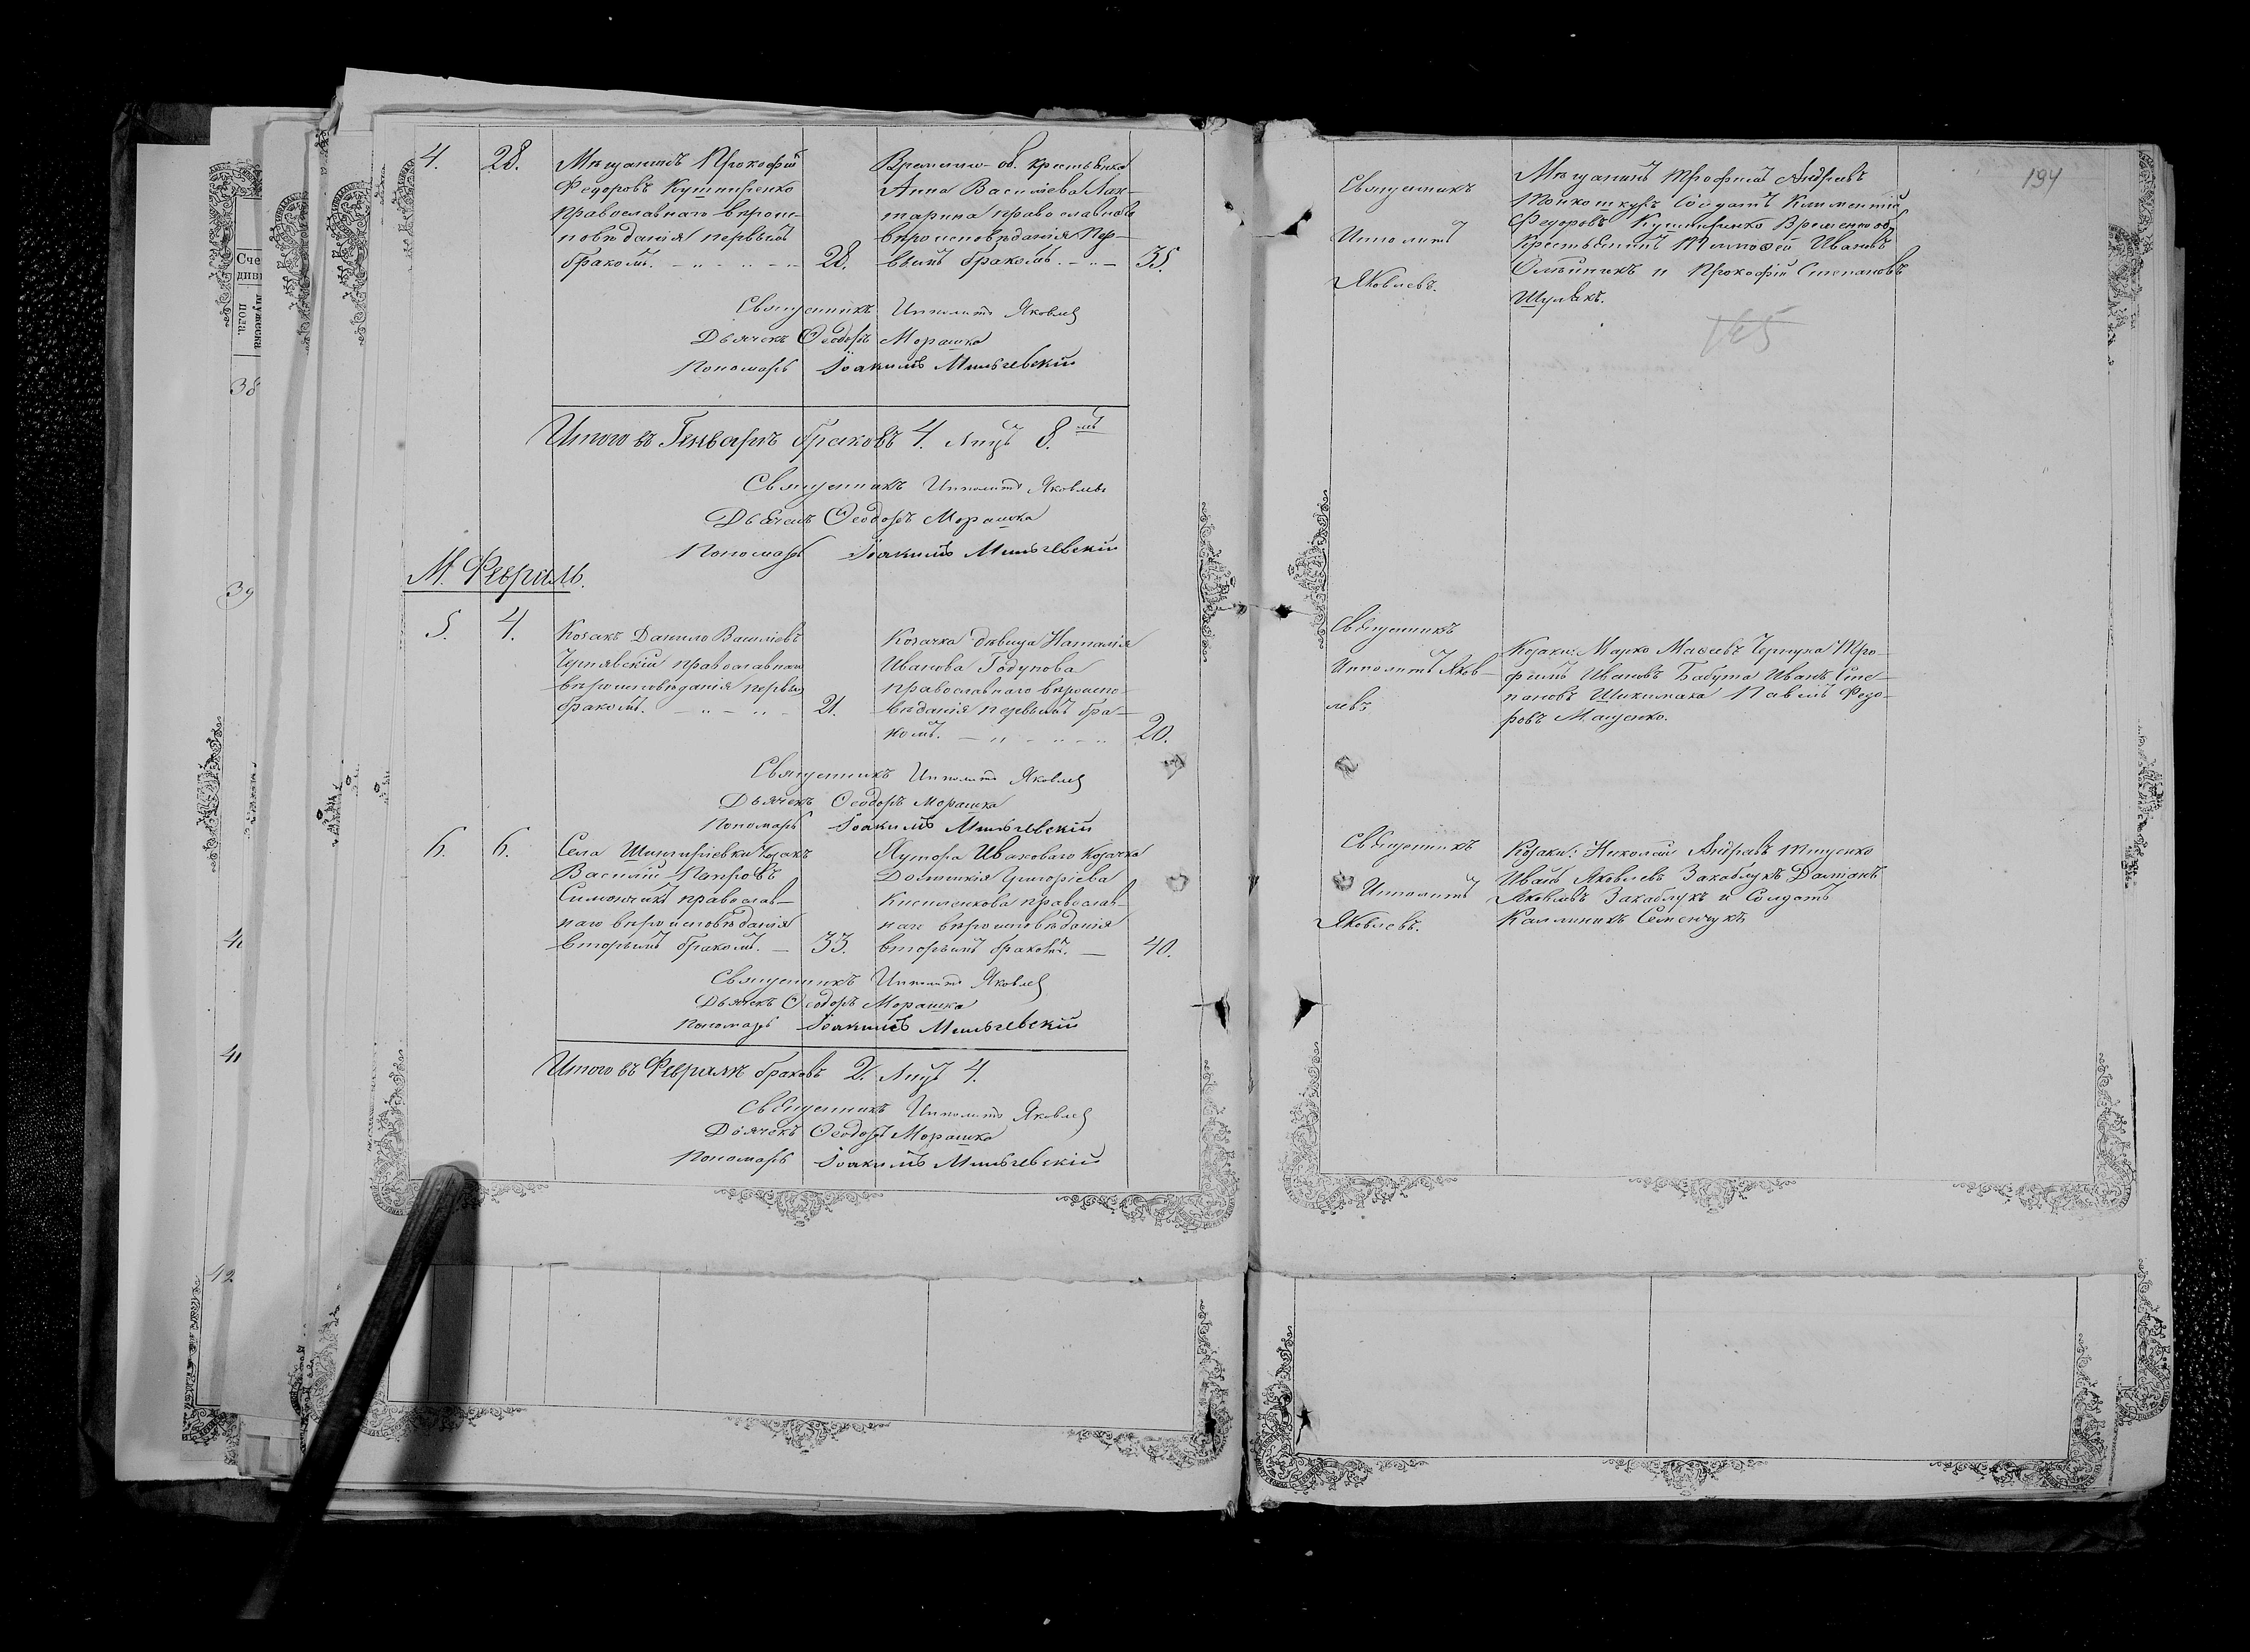 4. 28. Мѣщанинъ Прокофій
Федоровъ Кушниренко
православнаго вѣроис-
повѣданія первымъ
бракомъ. 28.
Временно-об. крестьянка
Анна Васильева
православнаго
вѣроисповѣданія пер-
вымъ бракомъ. 35.
Священникъ Ипполитъ Яковлевъ
Дьячекъ Ѳеодоръ Морашка
Пономарь Іоакимъ Мильчевскій
Итого въ Генварѣ браковъ 4. Лицъ 8.
Священникъ Ипполитъ Яковлевъ
Дьячекъ Ѳеодоръ Морашка
Пономарь Іоакимъ Мильчевскій
М. Февраль.
5. 4. Козакъ Данило Васильевъ
Чернявскій православнаго
вѣроисповѣданія первымъ
бракомъ. 21.
Козачка дѣвица Наталія
Иванова Годунова
православнаго вѣроиспо-
вѣданія первымъ бра-
комъ. 20.
Священникъ Ипполитъ Яковлевъ
Дьячекъ Ѳеодоръ Морашка
Пономарь Іоакимъ Мильчевскій
6. 6. Села козакъ
Василій Петровъ
Симончикъ православ-
наго вѣроисповѣданія
вторымъ бракомъ. 33.
Хутора Иваковаго Козачка
Домникія Григоріева
православ-
наго вѣроисповѣданія
вторымъ бракомъ. 40.
Священникъ Ипполитъ Яковлевъ
Дьячекъ Ѳеодоръ Морашка
Пономарь Іоакимъ Мильчевскій
Итого въ Февралѣ браковъ 2. Лицъ 4.
Священникъ Ипполитъ Яковлевъ
Дьячекъ Ѳеодоръ Морашка
Пономарь Іоакимъ Мильчевскій
194
Священникъ
Ипполитъ
Яковлевъ.
Мѣщанинъ Трофимъ Андреевъ
Тонкошкуръ Солдатъ Климентій
Федоровъ Кушниренко Временно об.
Крестьянинъ Тимофей Ивановъ
Олѣйникъ и Прокофій Степановъ
Шулякъ.
Священникъ
Ипполитъ Яков-
левъ
Козаки: Марко Маѳеевъ Чернуха Тро-
фимъ Ивановъ Бабута Иванъ Сте-
пановъ Шикимака Павелъ Федо-
ровъ Мащенко.
Священникъ
Ипполитъ
Яковлевъ.
Козаки: Николай Андреевъ Тищенко
Иванъ Яковлевъ Закаблукъ Даміанъ
Яковлевъ Закаблукъ и Солдатъ
Каллиникъ Семенчукъ
Сче
диви
мужеска
пола.
38
39
40
41
42